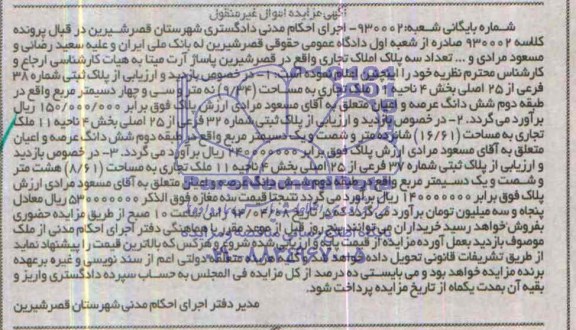 آگهی مزایده اموال غیرمنقول
شماره بایگانی شعبه:۹۳۰۰۰۲- اجرای احکام مدنی دادگستری شهرستان قصرشیرین در قبال پرونده
کلاسه ۹۳۰۰۰۲ صادره از شعبه اول دادگاه عمومی حقوقی قصرشیرین له بانک ملی ایران و علیه سعید رضائی و
مسعود مرادی و ... تعداد سه پلاک املاک تجاری واقع در قصرشیرین پاساژ آرت میتا به هیات کارشناسی ارجاع و
کارشناس محترم نظریه خود را اینچنین اعلام نموده است: ۱- در خصوص بازدید و ارزیابی از پلاک ثبتی شماره ۳۸
فرعی از ۲۵ اصلی بخش ۴ ناحیه ۱۱ ملک تجاری به مساحت (۹/۳۴) نه متر و سی و چهار دسیمتر مربع واقع در
طبقه دوم شش دانگ عرصه و اعیان متعلق به آقای مسعود مرادی ارزش پلاک فوق برابر ۱۵۰/۰۰۰/۰۰۰ ریال
برآورد می گردد. ۲- در خصوص بازدید و ارزیابی از پلاک ثبتی شماره ۳۲ فرعی از ۲۵ اصلی بخش ۴ ناحیه ۱۱ ملک
تجاری به مساحت (۱۶/۶۱) شانزده متر و شصت و یک دسیمتر مربع واقع در طبقه دوم شش دانگ عرصه و اعیان
متعلق به آقای مسعود مرادی ارزش پلاک فوق برابر ۲۴۰۰۰۰۰۰۰ ریال برآورد می گردد. ۳- در خصوص بازدید
و ارزیابی از پلاک ثبتی شماره ۳۷ فرعی از ۲۵ اصلی بخش ۴ ناحیه ۱۱ ملک تجاری به مساحت (۸/۶۱) هشت متر
و شصت و یک دسیمتر مربع واقع در طبقه دوم شش دانگ عرصه و اعیان متعلق به آقای مسعود مرادی ارزش
پلاک فوق برابر ۱۴۰۰۰۰۰۰۰ ریال برآورد می گردد نتیجتا قیمت سه مغازه فوق الذکر ۵۳۰۰۰۰۰۰۰ ریال معادل
پنجاه و سه میلیون تومان برآورد می گردد که در تاریخ ۹۴/۰۴/۰۸ از ساعت ۱۰ صبح از طریق مزایده حضوری
بفروش خواهد رسید خریداران می توانند پنج روز قبل از موعد مقرر با هماهنگی دفتر اجرای احکام مدنی از ملک
موصوف بازدید بعمل آورده مزایده از قیمت پایه و ارزیابی شده شروع و هرکس که بالاترین قیمت را پیشنهاد نماید
از طریق تشریفات قانونی تحویل داده خواهد شد کلیه هزینه متعلقه دولتی اعم از سند نویسی و غیره برعهده
برنده مزایده خواهد بود و می بایستی ده درصد از کل مزایده فی المجلس به حساب سپرده دادگستری واریز و
بقیه آن بمدت یکماه از تاریخ مزایده پرداخت شود.
مدیر دفتر اجرای احکام مدنی شهرستان قصرشیرین